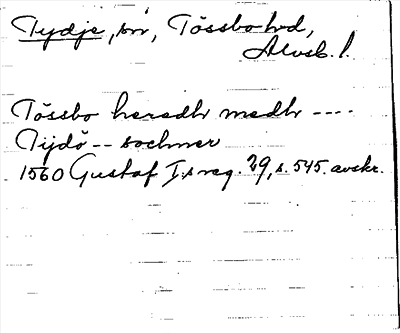 Tydje, sn, Tössbo hd,
Älvsb. l.
Tössbo heredh medh ----
Tijdö -- sochner
1560 Gustaf I:s reg. 29, s. 545. avskr.